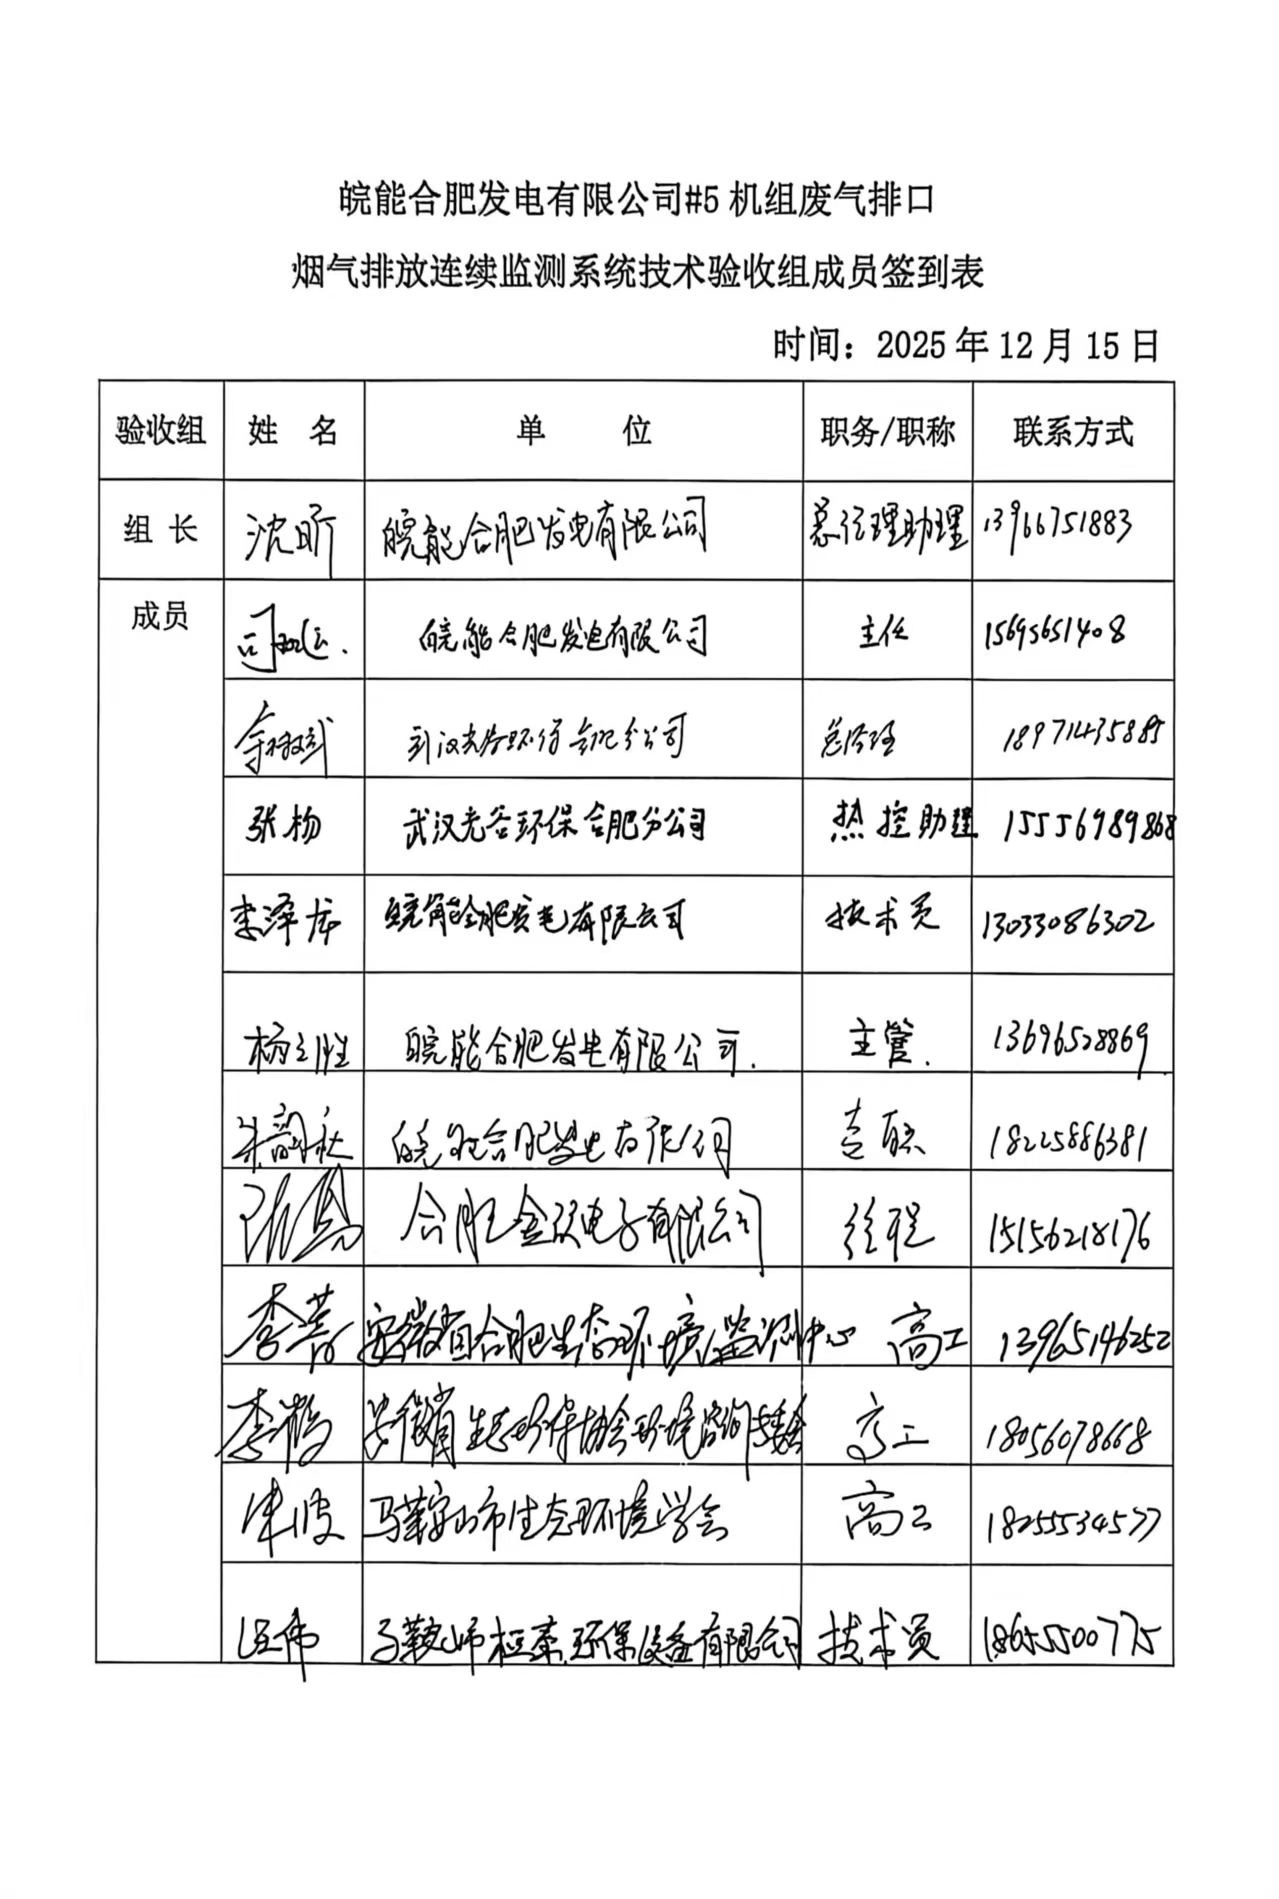 皖能合肥发电有限公司#5机组废气排口
烟气排放连续监测系统技术验收组成员签到表
时间：2025年12月15日
验收组 姓 名 单 位 职务/职称 联系方式
组 长 沈昕 皖能合肥发电有限公司 总经理助理 13966751883
成员 皖能合肥发电有限公司 主任 15695651408
武汉光谷环保合肥分公司 总经理 18971435885
张杨 武汉光谷环保合肥分公司 热控助理 15556989868
李泽龙 皖能合肥发电有限公司 技术员 13033086302
杨立胜 皖能合肥发电有限公司. 主管. 13696528869
朱韵秋 皖能合肥发电有限公司 18225886381
合肥金 电子有限公司 15156218176
李菁 安徽省合肥生态环境监测中心 高工 13965146252
李鹤 安徽省生态环保协会环境咨询专委会 高工 18056078668
马鞍山市生态环境学会 高工 18255534577
汪伟 马鞍山市 环保设备有限公司 技术员 18655500775